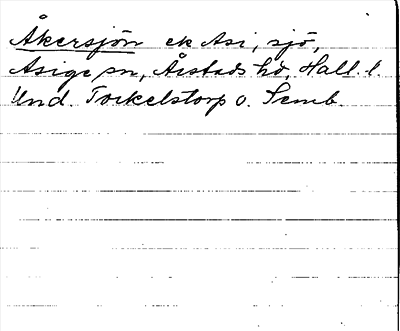 Åkersjön ek Asi, sjö,
Asige sn, Årstads hd, Hall. l.
Und. Torkelstorp o. Semb.